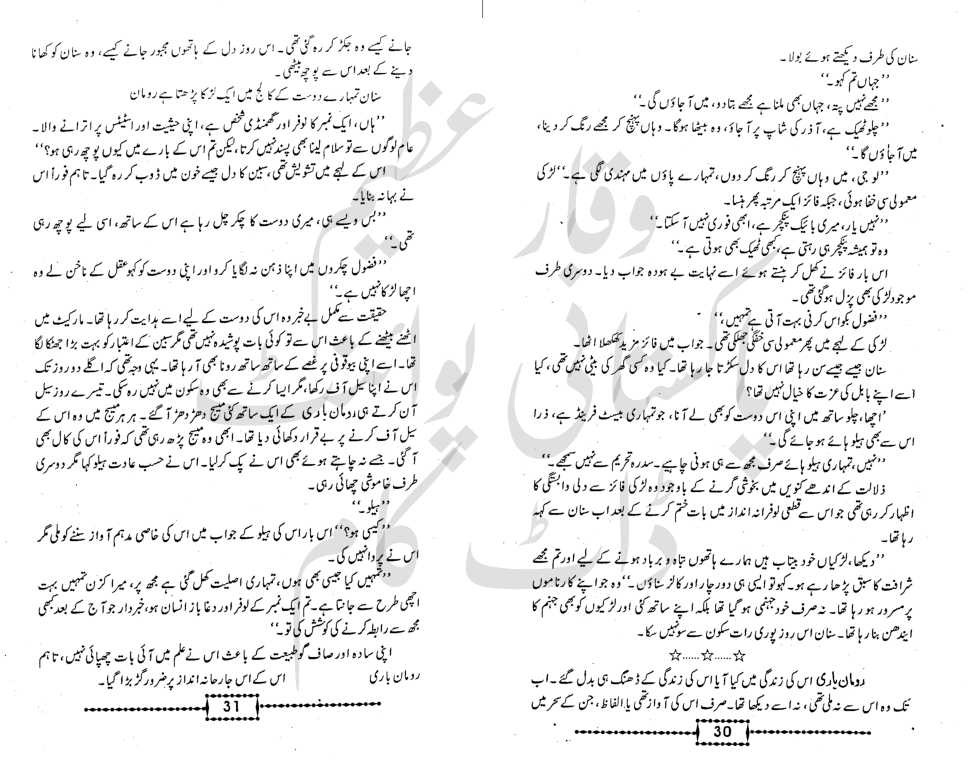 سنان کی طرف دیکھتے ہوئے بولا۔
’’جہاں تم کہو۔‘‘
’’مجھے نہیں پتہ، جہاں بھی ملنا ہے مجھے بتا دو، میں آ جاؤں گی۔‘‘
’’چلو ٹھیک ہے، آذر کی شاپ پر آجاؤ، وہ بیٹھا ہوگا۔ وہاں پہنچ کر مجھے رنگ کر دینا،
میں آ جاؤں گا۔‘‘
’’لو جی، میں وہاں پہنچ کر رنگ کر دوں، تمہارے پاؤں میں مہندی لگی ہے۔‘‘ لڑکی
معمولی سی خفا ہوئی، جبکہ فائز ایک مرتبہ پھر ہنسا۔
’’نہیں یار، میری بائیک پنکچر ہے، ابھی فوری نہیں آ سکتا۔‘‘
وہ تو ہمیشہ پنکچر ہی رہتی ہے، کبھی ٹھیک بھی ہوتی ہے۔‘‘
اس بار فائز نے کھل کر ہنستے ہوئے اسے نہایت بے ہودہ جواب دیا۔ دوسری طرف
موجود لڑکی بھی پزل ہو گئی تھی۔
’’فضول بکواس کرنی بہت آتی ہے تمہیں،‘‘
لڑکی کے لہجے میں پھر معمولی سی خفگی جھلکی تھی۔ جواب میں فائز مزید کھلکھلا اٹھا۔
سنان جیسے جیسے سن رہا تھا اس کا دل سکڑتا جا رہا تھا۔ کیا وہ کسی گھر کی بیٹی نہیں تھی، کیا
اسے اپنے بابل کی عزت کا خیال نہیں تھا؟
’اچھا، چلو ساتھ میں اپنی اس دوست کو بھی لے آنا، جو تمہاری بیسٹ فرینڈ ہے، ذرا
اس سے بھی ہیلو ہائے ہو جائے گی۔‘‘
’’نہیں، تمہاری ہیلو ہائے صرف مجھ سے ہی ہونی چاہیے۔ سدرہ تحریم سے نہیں سمجھے۔‘‘
ذلالت کے اندھے کنویں میں بخوشی گرنے کے باوجود وہ لڑکی فائز سے دلی وابستگی کا
اظہار کر رہی تھی جو اس سے قطعی لوفرانہ انداز میں بات ختم کرنے کے بعد اب سنان سے کہہ
رہا تھا۔
’’دیکھا، لڑکیاں خود بیتاب ہیں ہمارے ہاتھوں تباہ و برباد ہونے کے لیے اور تم مجھے
شرافت کا سبق پڑھا رہے ہو۔ کہو تو ایسی ہی دو چار اور کالز سناؤں۔‘‘ وہ جو اپنے کارناموں
پر مسرور ہو رہا تھا۔ نہ صرف خود جہنمی ہو گیا تھا بلکہ اپنے ساتھ کئی اور لڑکیوں کو بھی جہنم کا
ایندھن بنا رہا تھا۔ سنان اس روز پوری رات سکون سے سو نہیں سکا۔
☆......☆......☆
رومان باری اس کی زندگی میں کیا آیا اس کی زندگی کے ڈھنگ ہی بدل گئے۔ اب
تک وہ اس سے نہ ملی تھی، نہ اسے دیکھا تھا۔ صرف اس کی آواز تھی یا الفاظ، جن کے سحر میں
30
جانے کیسے وہ جکڑ کر رہ گئی تھی۔ اس روز دل کے ہاتھوں مجبور جانے کیسے، وہ سنان کو کھانا
دینے کے بعد اس سے پوچھ بیٹھی۔
سنان تمہارے دوست کے کالج میں ایک لڑکا پڑھتا ہے رومان
’’ہاں، ایک نمبر کا لوفر اور گھمنڈی شخص ہے، اپنی حیثیت اور اسٹیٹس پر اترانے والا۔
عام لوگوں سے تو سلام لینا بھی پسند نہیں کرتا، لیکن تم اس کے بارے میں کیوں پوچھ رہی ہو؟‘‘
اس کے لہجے میں تشویش تھی، سبین کا دل جیسے خون میں ڈوب کر رہ گیا۔ تاہم فوراً اس
نے بہانہ بنایا۔
’’بس ویسے ہی، میری دوست کا چکر چل رہا ہے اس کے ساتھ، اسی لیے پوچھ رہی
تھی۔‘‘
’’فضول چکروں میں اپنا ذہن نہ لگایا کرو اور اپنی دوست کو کہو عقل کے ناخن لے وہ
اچھا لڑکا نہیں ہے۔‘‘
حقیقت سے مکمل بے خبر وہ اس کی دوست کے لیے اسے ہدایت کر رہا تھا۔ مارکیٹ میں
اٹھنے بیٹھنے کے باعث اس سے تو کوئی بات پوشیدہ نہیں تھی مگر سبین کے اعتبار کو بہت بڑا جھٹکا لگا
تھا۔ اسے اپنی بیوقوفی پر غصے کے ساتھ ساتھ رونا بھی آ رہا تھا۔ یہی وجہ تھی کہ اگلے دو روز تک
اس نے اپنا سیل آف رکھا، مگر ایسا کرنے سے بھی وہ سکون میں نہیں رہ سکی۔ تیسرے روز سیل
آن کرتے ہی رومان باری کے ایک ساتھ کئی میسج دھڑ دھڑ آ گئے۔ ہر ہر میسج میں وہ اس کے
سیل آف کرنے پر بے قرار دکھائی دیا تھا۔ ابھی وہ میسج پڑھ رہی تھی کہ فوراً اس کی کال بھی
آ گئی۔ جسے نہ چاہتے ہوئے بھی اس نے پک کر لیا۔ اس نے حسب عادت ہیلو کہا مگر دوسری
طرف خاموشی چھائی رہی۔
’’ہیلو۔‘‘
’’کیسی ہو؟‘‘ اس بار اس کی ہیلو کے جواب میں اس کی خاصی مدہم آواز سننے کو ملی مگر
اس نے پروا نہیں کی۔
’’تمہیں کیا جیسی بھی ہوں، تمہاری اصلیت کھل گئی ہے مجھ پر، میرا کزن تمہیں بہت
اچھی طرح سے جانتا ہے۔ تم ایک نمبر کے لوفر اور دغا باز انسان ہو، خبردار جو آج کے بعد کبھی
مجھ سے رابطہ کرنے کی کوشش کی تو۔‘‘
اپنی سادہ اور صاف گو طبیعت کے باعث اس نے علم میں آئی بات چھپائی نہیں، تاہم
رومان باری اس کے اس جارحانہ انداز پر ضرور گڑبڑا گیا۔
31
وقار عظیم
پاکستانی پوائنٹ
ڈاٹ کام